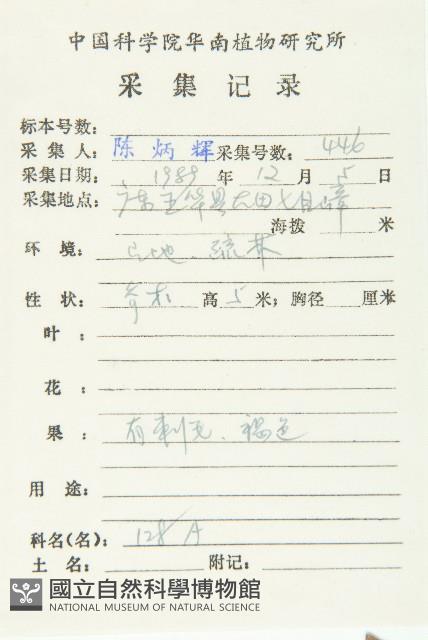 中国科学院华南植物研究所
采集记录
标本号数:
采集人: 陈炳辉 采集号数: 446
采集日期: 1989 年 12 月 5 日
采集地点: 广东五华县七目嶂
海拨 米
环境: 山地、疏林
性状: 乔木 高 5 米; 胸径 厘米
叶:
花:
果: 有刺毛、褐色
用途:
科名(名): 128A
土名: 附记:
國立自然科學博物館
NATIONAL MUSEUM OF NATURAL SCIENCE